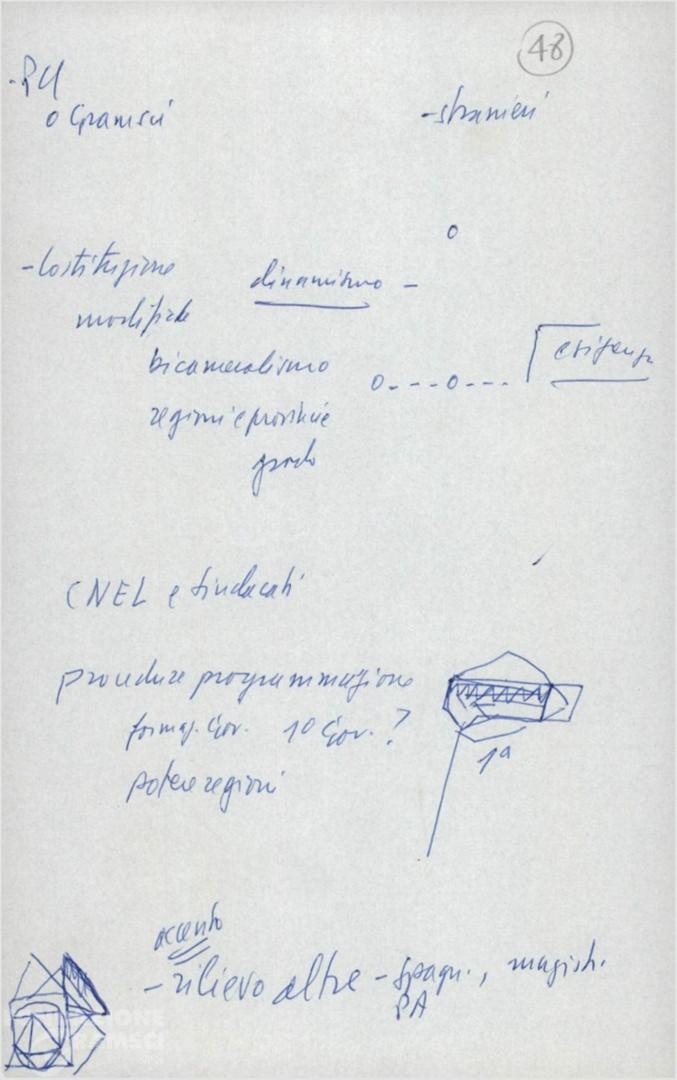 48
- PCI
o Gramsci
- stranieri
o
- Costituzione
dinamismo -
modifiche
bicameralismo
o - - - o - - -
esigenze
regioni e provincie
grado
CNEL e sindacati
procedure programmazione
formaz. Gov. 1o Gov. ?
1a
potere regioni
accento
- rilievo altre - spagn., magistr.
PA